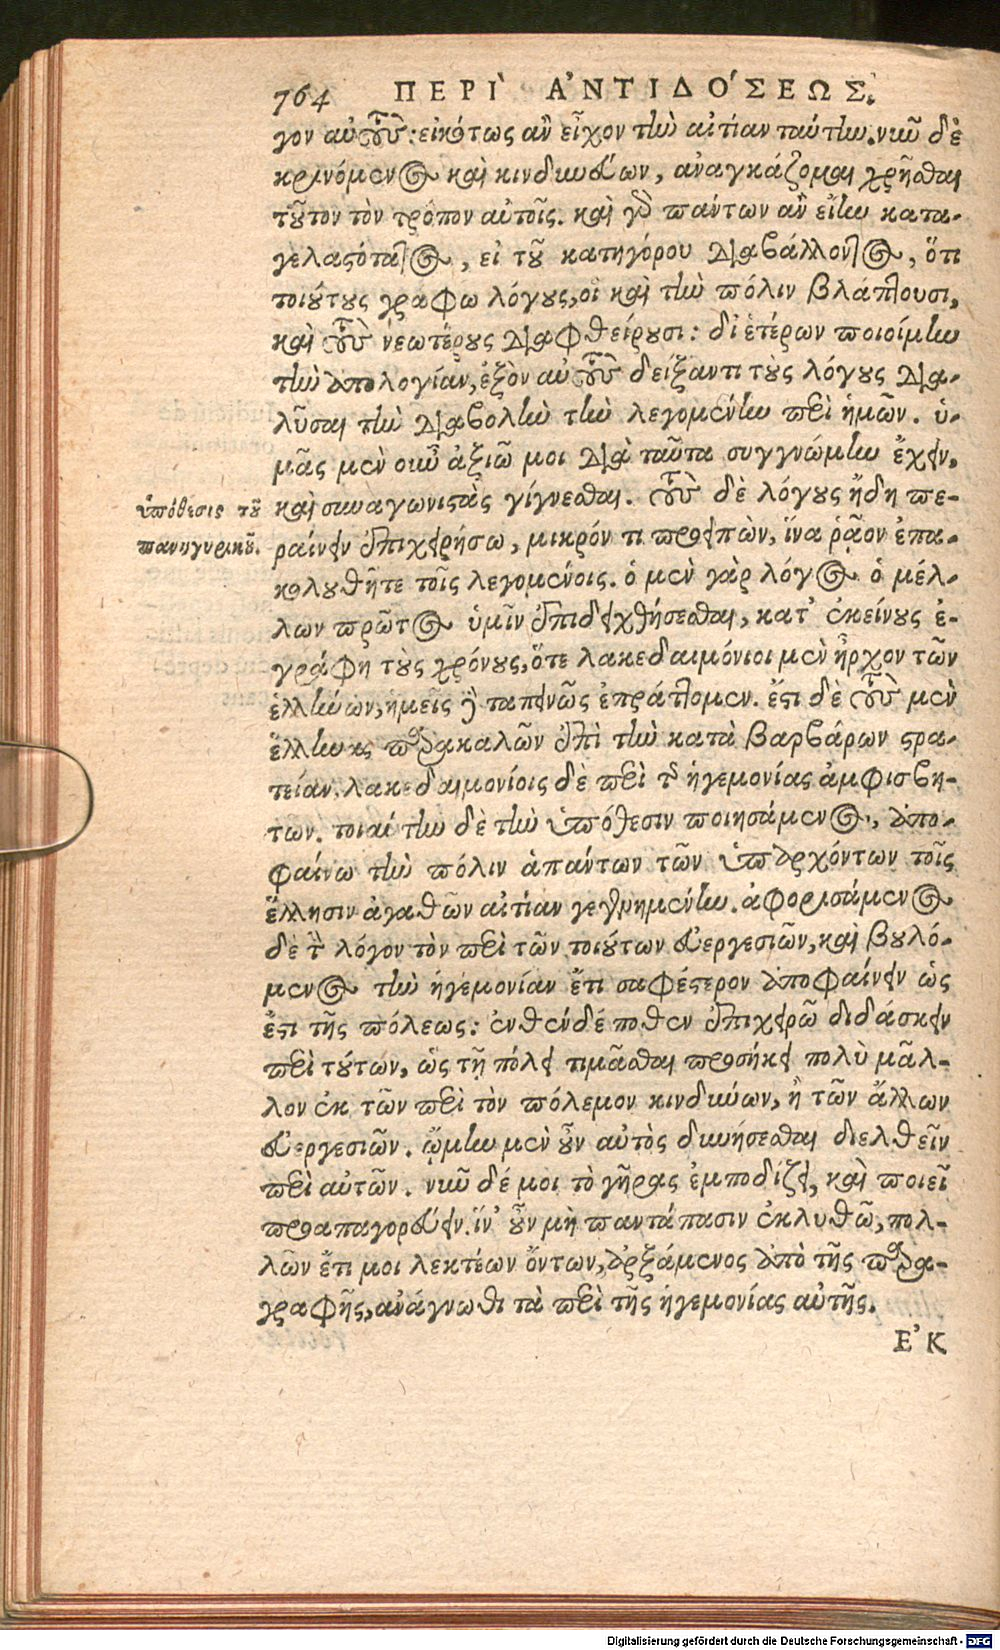 764 ΠΕΡῚ Α᾿ΝΤΙΔΟ´ΣΕΩΣ.
γον αὐτούς: εἰκότως ἂν εἶχον τὴν αἰτίαν ταύτην. νῦν δὲ
κρινόμενος καὶ κινδυνεύων, ἀναγκάζομαι χρῆσθαι
τοῦτον τὸν τρόπον αὐτοῖς. καὶ γὰρ πάντων ἂν εἴην κατα-
γελαστότατος, εἰ τοῦ κατηγόρου διαβάλλοντος, ὅτι
τοιούτους γράφω λόγους, οἳ καὶ τὴν πόλιν βλάπτουσι,
καὶ τοὺς νεωτέρους διαφθείρουσι: δι' ἑτέρων ποιοίμην
τὴν ἀπολογίαν, ἐξὸν αὐτοὺς δείξαντι τοὺς λόγους δια-
λῦσαι τὴν διαβολὴν τὴν λεγομένην περὶ ἡμῶν. ὑ-
μᾶς μὲν οὖν ἀξιῶ μοι διὰ ταῦτα συγγνώμην ἔχειν,
καὶ συναγωνιστὰς γίγνεσθαι. τοὺς δὲ λόγους ἤδη πε-
ὑπόθεσις τοῦ
πανηγυρικοῦ.
ραίνειν ἐπιχειρήσω, μικρόν τι προειπὼν, ἵνα ῥᾷον ἐπα-
κολουθῆτε τοῖς λεγομένοις. ὁ μὲν γὰρ λόγος ὁ μέλ-
λων πρῶτος ὑμῖν ἐπιδειχθήσεσθαι, κατ' ἐκείνους ἐ-
γράφη τοὺς χρόνους, ὅτε λακεδαιμόνιοι μὲν ἦρχον τῶν
ἑλλήνων, ἡμεῖς δὲ ταπεινῶς ἐπράττομεν. ἔστι δὲ τοὺς μὲν
ἕλληνας παρακαλῶν ἐπὶ τὴν κατὰ βαρβάρων στρα-
τείαν, λακεδαιμονίοις δὲ περὶ τῆς ἡγεμονίας ἀμφισβη-
τῶν. τοιαύτην δὲ τὴν ὑπόθεσιν ποιησάμενος, ἀπο-
φαίνω τὴν πόλιν ἁπάντων τῶν ὑπαρχόντων τοῖς
ἕλλησιν ἀγαθῶν αἰτίαν γεγενημένην. ἀφορισάμενος
δὲ τὸν λόγον τὸν περὶ τῶν τοιούτων εὐεργεσιῶν, καὶ βουλό-
μενος τὴν ἡγεμονίαν ἔτι σαφέστερον ἀποφαίνειν ὡς
ἔστι τῆς πόλεως: ἐνθένδε ποθεν ἐπιχειρῶ διδάσκειν
περὶ τούτων, ὡς τῇ πόλει τιμᾶσθαι προσήκει πολὺ μᾶλ-
λον ἐκ τῶν περὶ τὸν πόλεμον κινδύνων, ἢ τῶν ἄλλων
εὐεργεσιῶν. ᾤμην μὲν οὖν αὐτὸς δυνήσεσθαι διελθεῖν
περὶ αὐτῶν. νῦν δέ μοι τὸ γῆρας ἐμποδίζει, καὶ ποιεῖ
προαπαγορεύειν. ἵν' οὖν μὴ παντάπασιν ἐκλυθῶ, πολ-
λῶν ἔτι μοι λεκτέων ὄντων, ἀρξάμενος ἀπὸ τῆς παρα-
γραφῆς, ἀνάγνωθι τὰ περὶ τῆς ἡγεμονίας αὐτῆς.
Ε᾿Κ
Digitalisierung gefördert durch die Deutsche Forschungsgemeinschaft - DFG